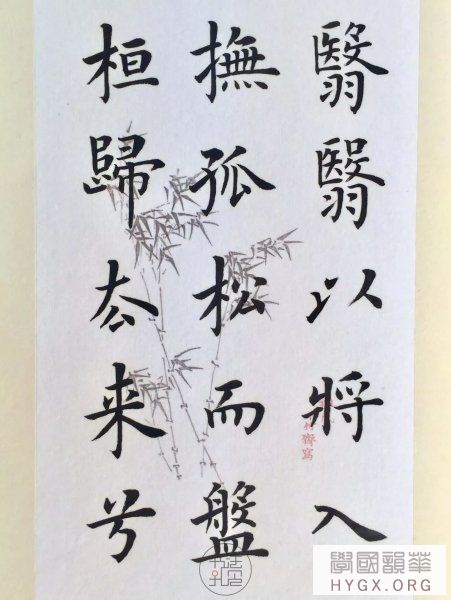 翳翳以將入
撫孤松而盤
桓歸厺来兮
齊寫
華韻國學
HYGX.ORG